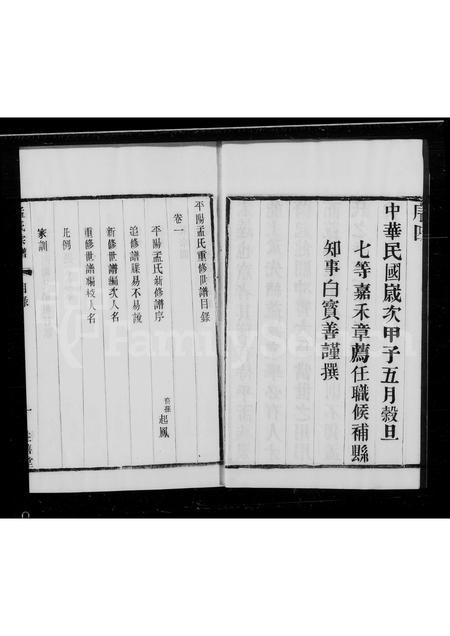 序四
中華民國歲次甲子五月穀旦
七等嘉禾章薦任職候補縣
知事白寶善謹撰
平陽孟氏重修世譜目錄
卷一
平陽孟氏新修譜序
起鳳
追修譜牒易不易說
新修世譜編次人名
重修世譜編校人名
凡例
家訓
孟氏宗譜
目錄
一
FamilySearch